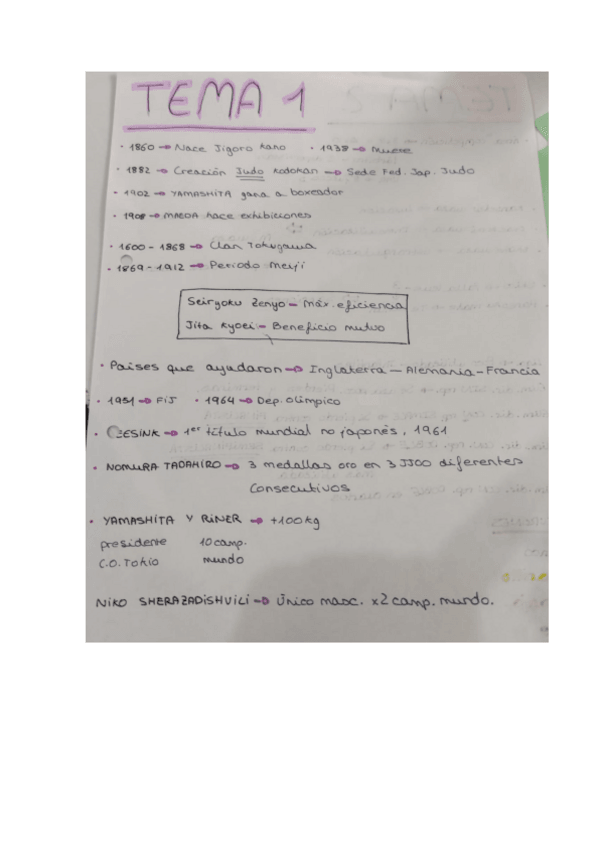 TEMA 1
· 1860 → Nace Jigoro Kano · 1938 → muere
· 1882 → Creación Judo Kodokan → Sede Fed. Jap. Judo
· 1902 → YAMASHITA gana a boxeador
· 1908 → MAEDA hace exhibiciones
· 1600 - 1868 → Clan Tokugawa
· 1869 - 1912 → Periodo Meiji
Seiryoku Zenyo - máx. eficiencia
Jita Kyoei - Beneficio mutuo
· Paises que ayudaron → Inglaterra - Alemania - Francia
· 1951 → FIJ · 1964 → Dep. Olímpico
· GEESINK → 1er título mundial no japonés, 1961
· NOMURA TADAHIRO → 3 medallas oro en 3 JJOO diferentes
consecutivos
· YAMASHITA Y RINER → +100kg
presidente 10 camp.
C.O. Tokio mundo
NIKO SHERAZADISHVILI → Único masc. x2 camp. mundo.